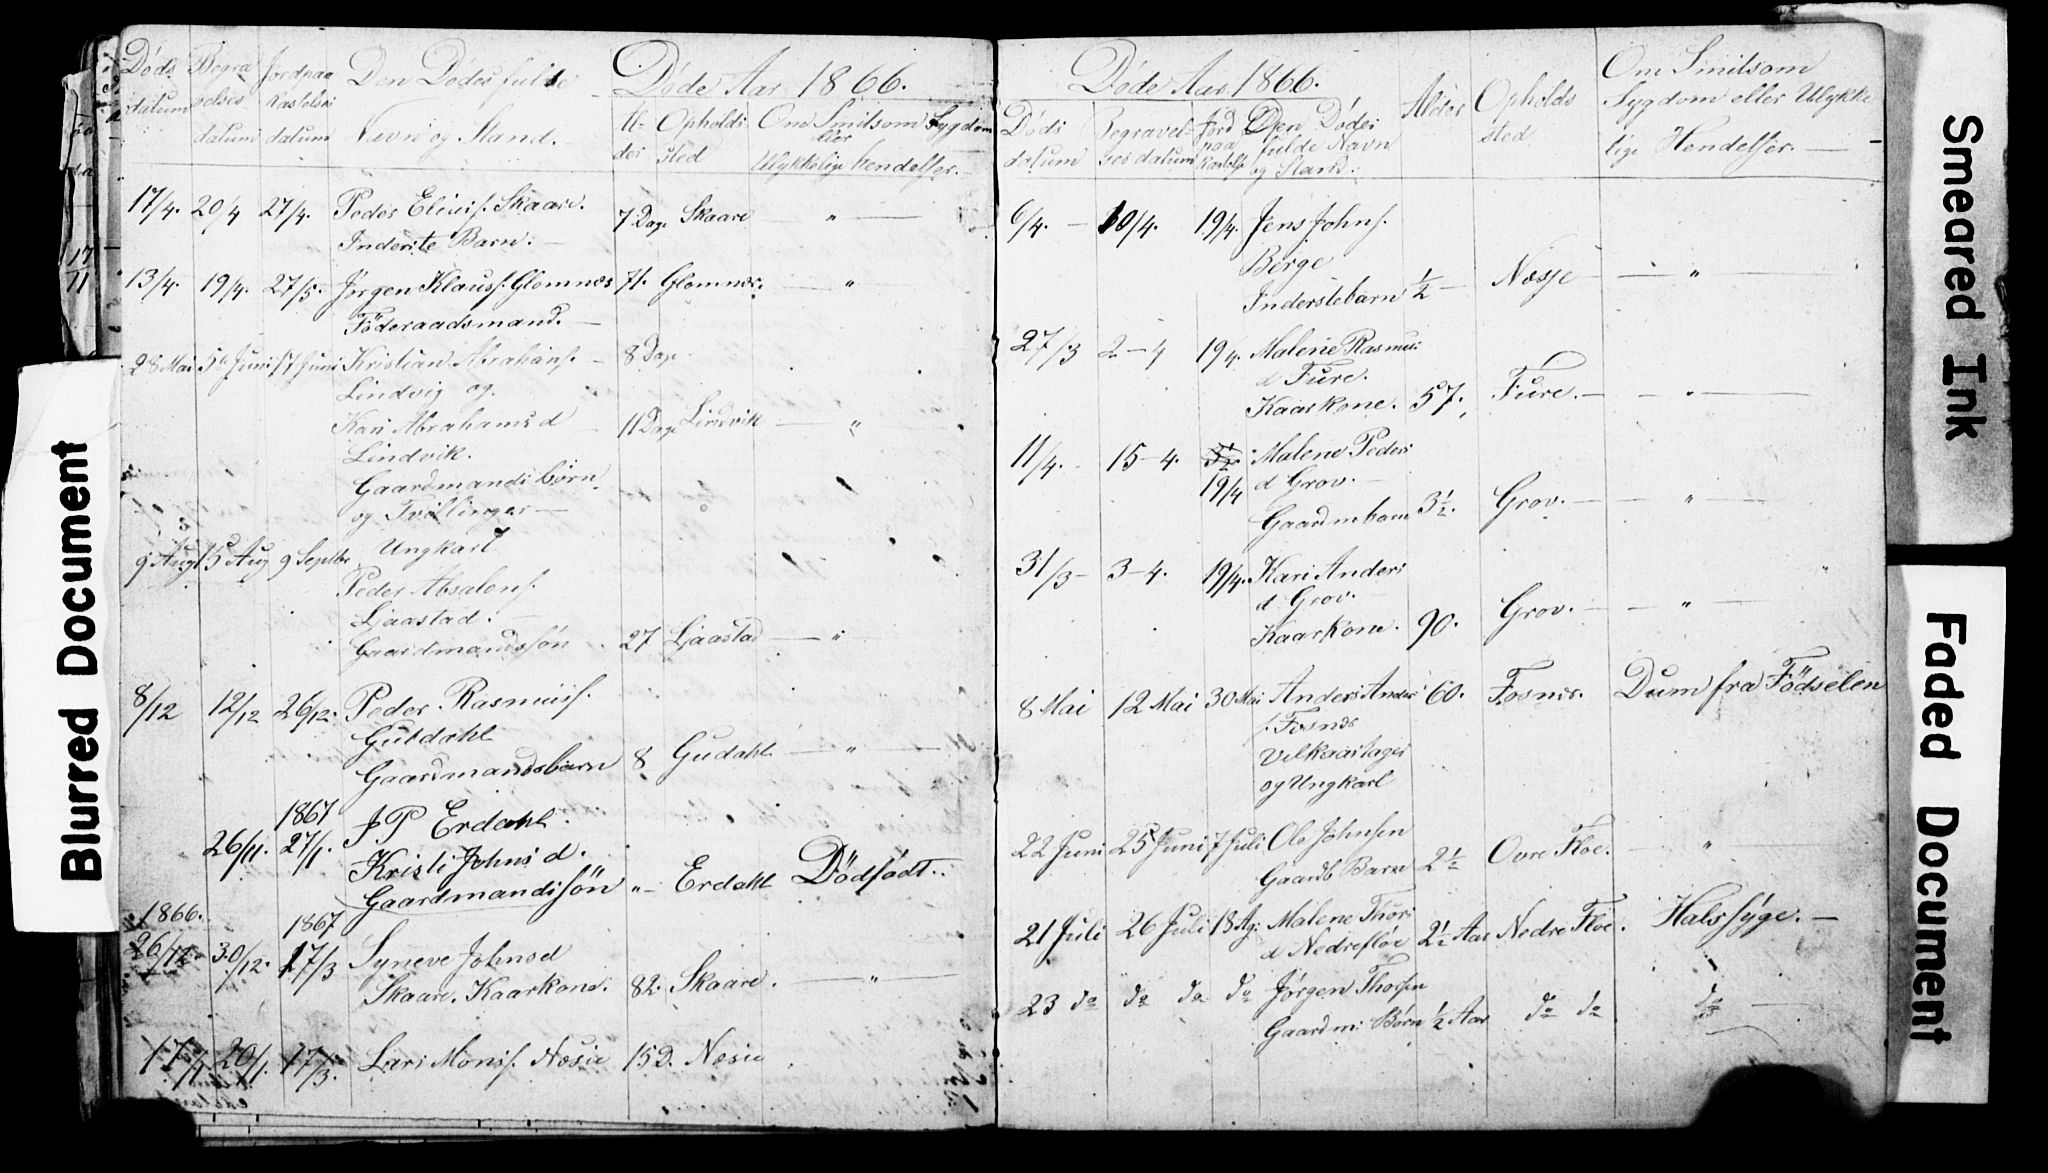 Døde Aar 1866.
Døds datum
Begravelses datum
Jordpaa kastelses datum
Den Dødes fulde
Navn og Stand.
Al- der
Opholds sted
Om Smitsom Sygdom
eller
Ulykkelige hendelser.
17/4. 20/4 27/4. Peder Elias s. Skaare. 7 Dage Skaare — „ —
Inderste Barn. —
13/4. 19/4. 27/5. Jørgen Klaus s. Glomnes 71. Glomnes. — „
Föderaadsmand. —
28 Mai 5te Juni 17 Juni Kristian Abrahams. — 8 Dage
Lindvig og
Kari Abrahams d 11 Dage Lindvik — „
Lindvik.
Gaardmands börn
og Tvillinger —
9 Aug 15 Aug 9 Septbr Ungkarl
Peder Absalons.
Ljaastad. —
Gaardmandssön 27 Ljaastad — „
8/12 12/12 26/12. Peder Rasmus s.
Guldahl
Gaardmandsbarn 8 Gudahl — „ —
1867
26/11. 27/1. J P Erdahl.
Kristi Johns d.
Gaardmandssön „ — Erdahl Dödfödt.
1866. 1867
26/12. 30/12. 17/3 Syneve Johnsd
Skaare. Kaarkone. 82. Skaare. — „ —
17/1 20/1. 17/3. Lars Mons s. Nesje 15 D. Nesje
Døde Aar 1866.
Døds datum
Begravel- ses datum
Jord paa kastelse
Den Dødes
fulde Navn
og Stand.
Alder
Opholds
sted
Om Smitsom
Sygdom eller Ulykke
lige Hendelser. —
6/4. — 10/4. 19/4. Jens Johns.
Berge
Inderstebarn 1/2 — Nesje — — „ —
27/3 2-4 19/4. Malene Rasmus
d Fure.
Kaarkone. 57. Fure. — — „ —
11/4. 15-4. Malene Peders
19/4 d Grov. —
Gaardmbarn 3½. Grov. — — „ —
31/3 — 3-4. 19/4. Kari Anders
d. Grov.
Kaarkone. 90. Grov. — — „ —
8 Mai 12 Mai 30 Mai Anders Anders 60. Fosnes. Dum fra Födselen
s. Fosnes
Vilkaarstager
og Ungkarl
22 Juni 25 Juni 7 Juli Ole Johnsen
Gaardb Barn 2½ Ovre Floe. — „
21 Juli 26 Juli 18 Ag: Malene Thors
d Nedrefloe 2½ Aar Nedre Floe. Halssyge. —
23 do do do do Jørgen Thorsen
Gaardm: Børn ½ Aar do do do —
Blurred Document
Smeared Ink
Faded Document